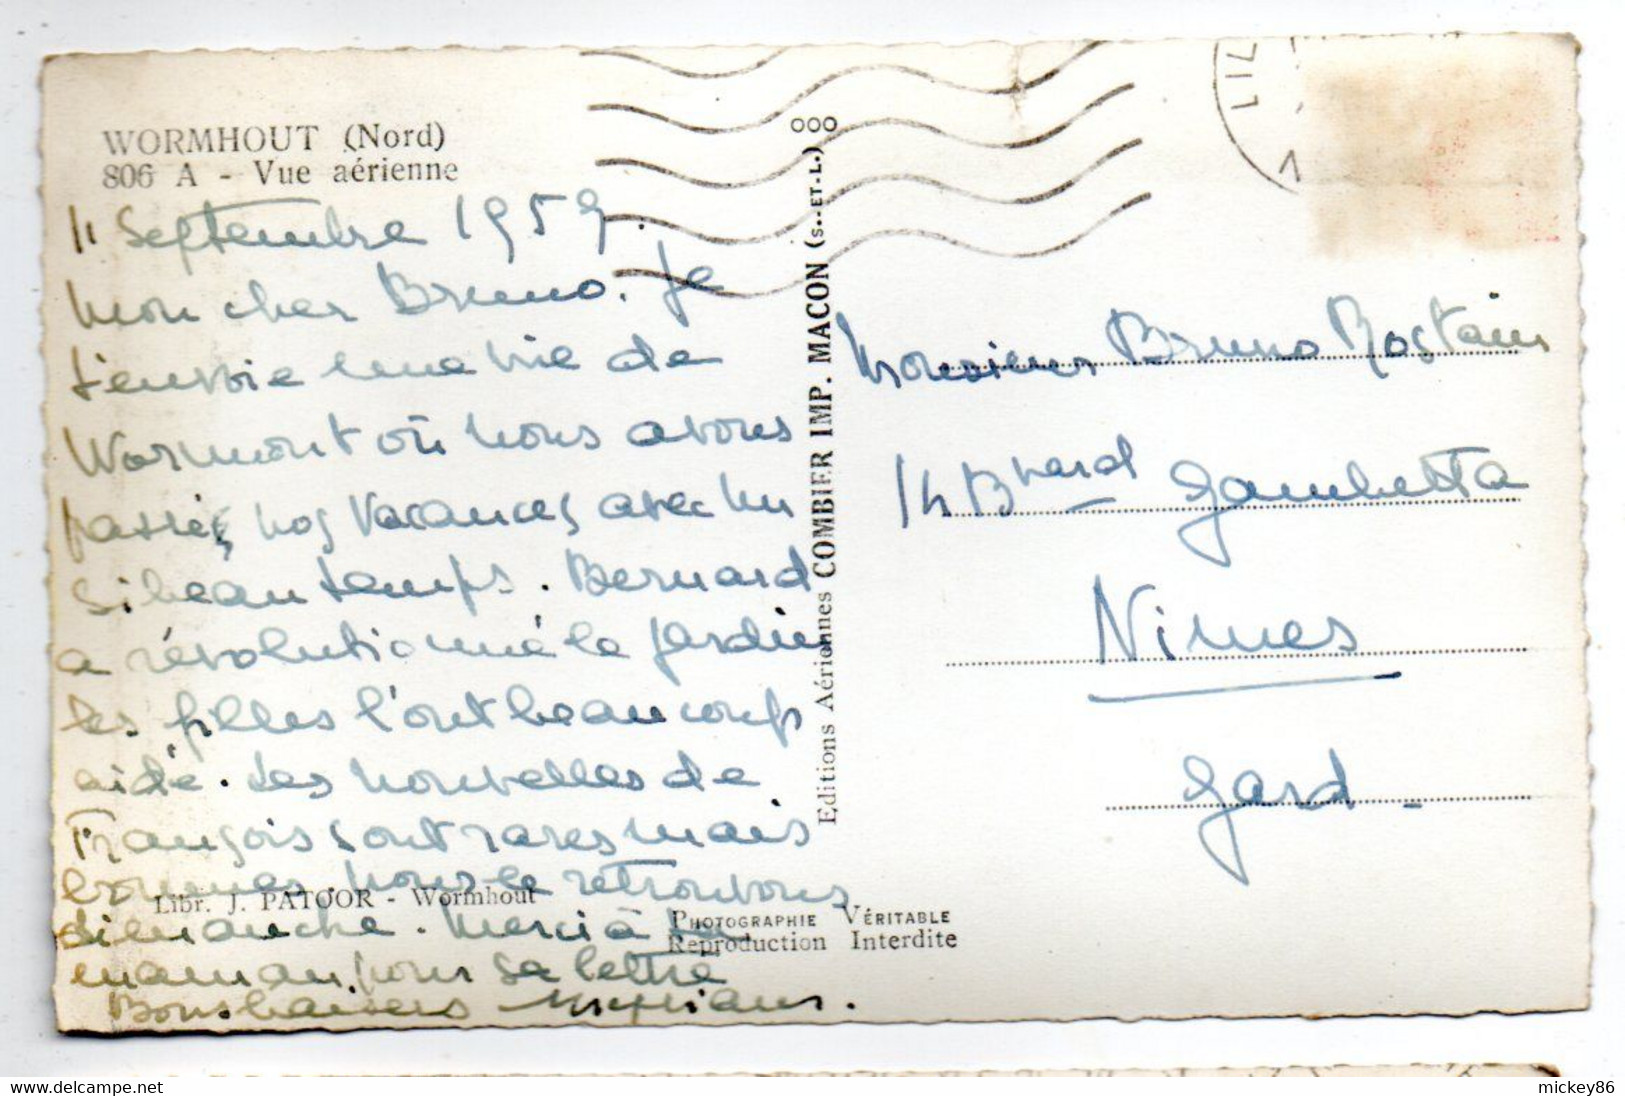 WORMHOUT (Nord)
806 A - Vue aérienne
11 Septembre 1959.
Mon cher Bruno. Je
t'envoie une vue de
Wormont où nous avons
passé nos vacances avec un
si beau temps. Bernard
a révolutionné le jardin
les filles l'ont beaucoup
aidé. Les nouvelles de
François sont rares mais
bonnes. Nous le retrouvons
dimanche. Merci à ta
maman pour sa lettre
Bons baisers
Libr. J. PATOOR - Wormhout
PHOTOGRAPHIE VÉRITABLE
Reproduction Interdite
Editions Aériennes COMBIER IMP. MACON (S.-ET-L.)
Monsieur Bruno Rostain
14 Bvard Gambetta
Nimes
Gard -
mickey86